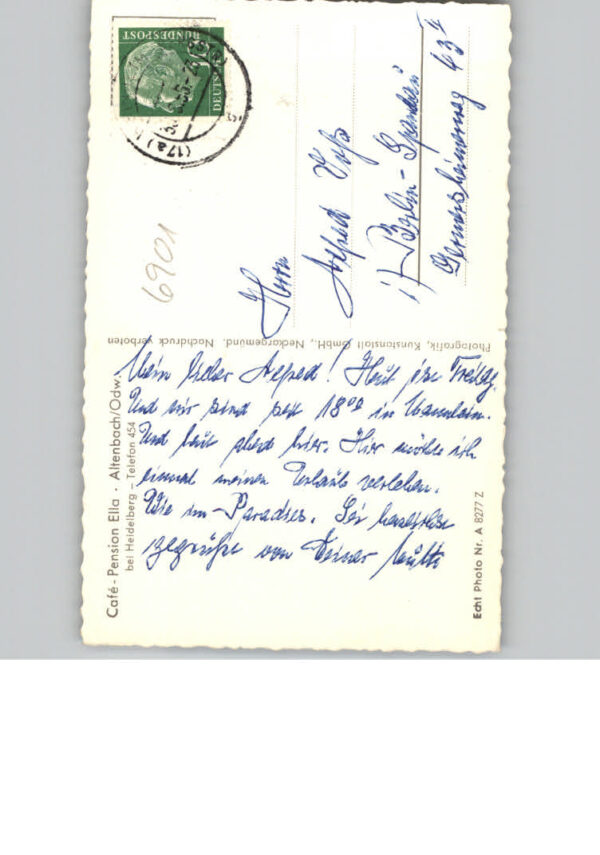 Mein lieber Alfred! Heut ist Freitag.
Und wir sind seit 18⁰⁰ in
Und heut abend hier. Hier möchte ich
einmal meinen Urlaub verleben.
Wie im Paradies. Sei herzlichst
gegrüßt von Deiner Mutti
Herrn
Alfred Voß
1) Berlin-Spandau
43ᴵᴵ
6901
DEUTSCHE
BUNDESPOST
(17a)
Café-Pension Ella · Altenbach/Odw.
bei Heidelberg – Telefon 454
Photografik, Kunstanstalt GmbH., Neckargemünd. Nachdruck verboten
Echt Photo Nr. A 8277 Z